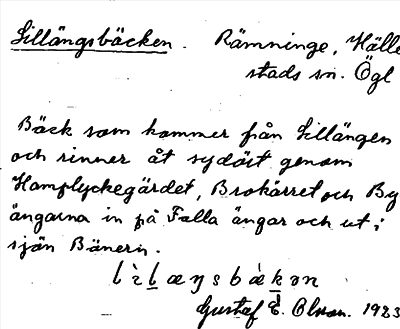 Lillängsbäcken. Rämninge, Hälle
stads sn. Ögl
Bäck som kommer från Lillängen
och rinner åt sydöst genom
Hamplyckegärdet, Brokärret och By
ängarna in på Falla ängar och ut i
sjön Bänern.
Gustaf E. Olson. 1923